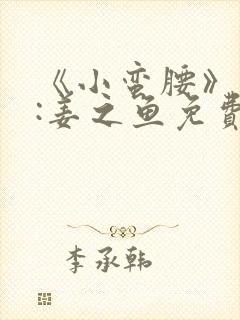 《小蛮腰》
:姜之鱼免费
李承韩